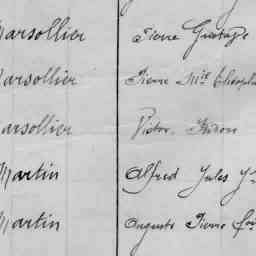 Marsollier Pierre Gustave
Marsollier Pierre Mie
Marsollier Victor
Martin Alfred Jules
Martin Auguste Pierre